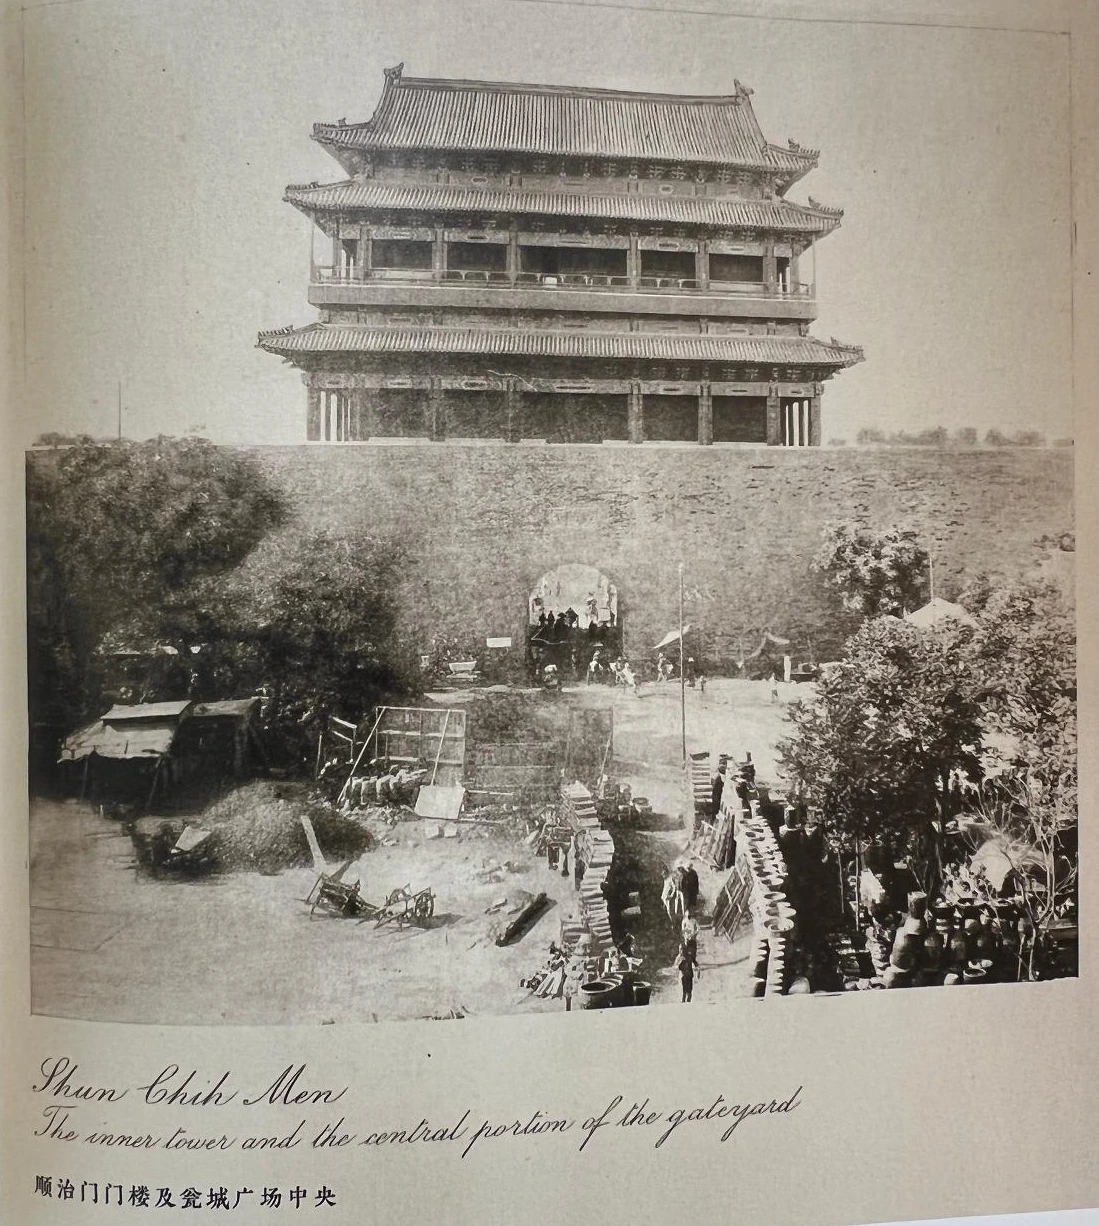 Shun Chih Men
The inner tower and the central portion of the gateyard
顺治门门楼及瓮城广场中央